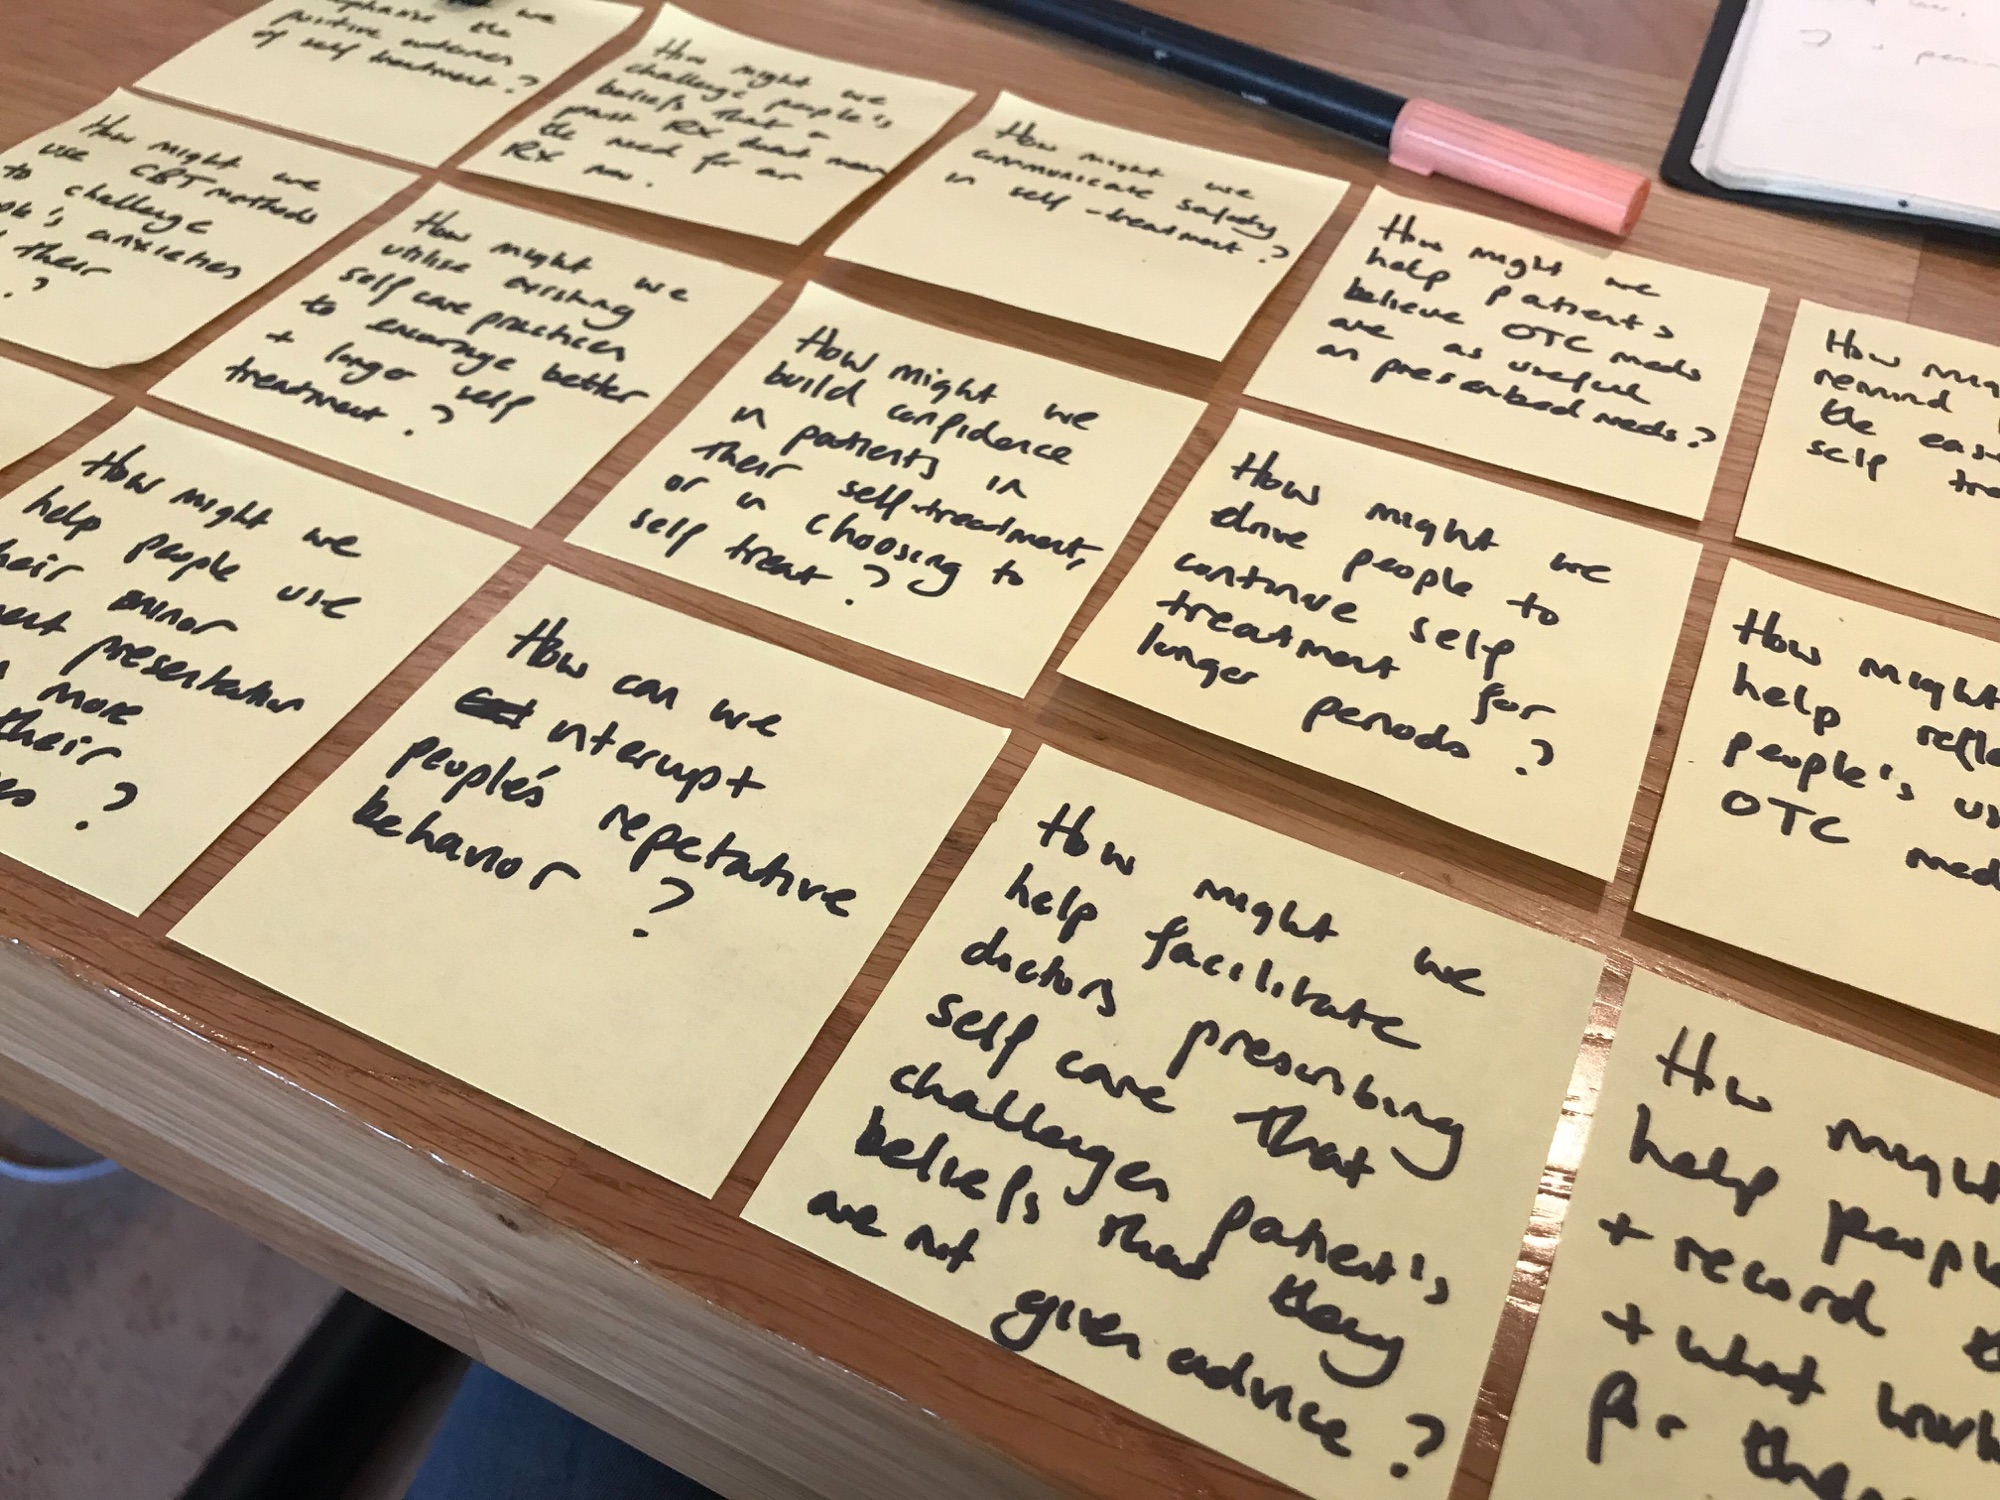 we
emphasise the
positive outcomes
of self treatment?
How might we
challenge people's
beliefs that a
past RX doesn't mean
the need for an
RX now.
How might we
communicate safety
in self-treatment?
How might we
help patient's
believe OTC meds
are as useful
as prescribed meds?
How mig
remind
the ease
self tre
How might we
use CBT methods
to challenge
anxieties
their
?
How might we
utilise existing
self care practices
to encourage better
+ longer self
treatment?
How might we
build confidence
in patients in
their self-treatment,
or in choosing to
self treat?
How might we
drive people to
continue self
treatment for
longer periods?
How might
help refle
people's us
OTC med
How might we
help people use
their minor
presentation
more
their
?
How can we
interupt
people's repetative
behavior?
How might we
help facilitate
doctors prescribing
self care that
challenges patient's
beliefs that they
are not given advice?
How might
help people
+ record
+ what work
for